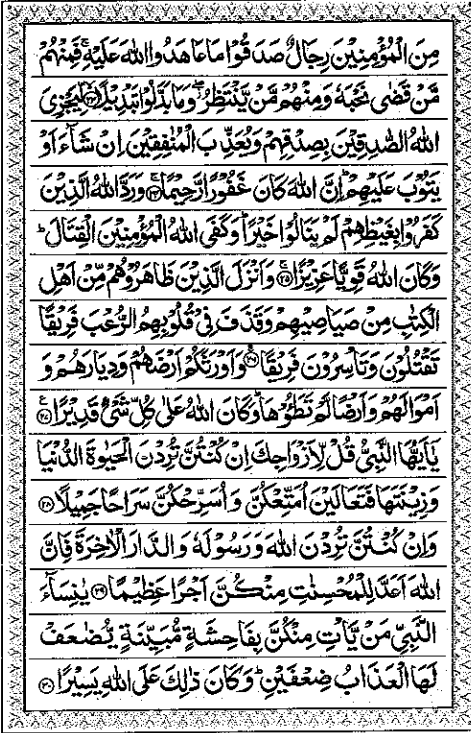 مِنَ الْمُؤْمِنِيْنَ رِجَالٌ صَدَقُوْا مَا عَاهَدُوا اللّٰهَ عَلَيْهِ ۚ فَمِنْهُمْ
مَّنْ قَضٰى نَحْبَهٗ وَمِنْهُمْ مَّنْ يَّنْتَظِرُ ۖ وَمَا بَدَّلُوْا تَبْدِيْلًا ﴿۲۳﴾ لِّيَجْزِيَ
اللّٰهُ الصّٰدِقِيْنَ بِصِدْقِهِمْ وَيُعَذِّبَ الْمُنٰفِقِيْنَ اِنْ شَآءَ اَوْ
يَتُوْبَ عَلَيْهِمْ ؕ اِنَّ اللّٰهَ كَانَ غَفُوْرًا رَّحِيْمًا ﴿۲۴﴾ وَرَدَّ اللّٰهُ الَّذِيْنَ
كَفَرُوْا بِغَيْظِهِمْ لَمْ يَنَالُوْا خَيْرًا ؕ وَكَفَى اللّٰهُ الْمُؤْمِنِيْنَ الْقِتَالَ ؕ
وَكَانَ اللّٰهُ قَوِيًّا عَزِيْزًا ﴿۲۵﴾ وَاَنْزَلَ الَّذِيْنَ ظَاهَرُوْهُمْ مِّنْ اَهْلِ
الْكِتٰبِ مِنْ صَيَاصِيْهِمْ وَقَذَفَ فِيْ قُلُوْبِهِمُ الرُّعْبَ فَرِيْقًا
تَقْتُلُوْنَ وَتَاْسِرُوْنَ فَرِيْقًا ﴿۲۶﴾ وَاَوْرَثَكُمْ اَرْضَهُمْ وَدِيَارَهُمْ وَ
اَمْوَالَهُمْ وَاَرْضًا لَّمْ تَطَـُٔوْهَا ؕ وَكَانَ اللّٰهُ عَلٰى كُلِّ شَيْءٍ قَدِيْرًا ﴿۲۷﴾
يٰۤاَيُّهَا النَّبِيُّ قُلْ لِّاَزْوَاجِكَ اِنْ كُنْتُنَّ تُرِدْنَ الْحَيٰوةَ الدُّنْيَا
وَزِيْنَتَهَا فَتَعَالَيْنَ اُمَتِّعْكُنَّ وَاُسَرِّحْكُنَّ سَرَاحًا جَمِيْلًا ﴿۲۸﴾
وَاِنْ كُنْتُنَّ تُرِدْنَ اللّٰهَ وَرَسُوْلَهٗ وَالدَّارَ الْاٰخِرَةَ فَاِنَّ
اللّٰهَ اَعَدَّ لِلْمُحْسِنٰتِ مِنْكُنَّ اَجْرًا عَظِيْمًا ﴿۲۹﴾ يٰنِسَآءَ
النَّبِيِّ مَنْ يَّاْتِ مِنْكُنَّ بِفَاحِشَةٍ مُّبَيِّنَةٍ يُّضٰعَفْ
لَهَا الْعَذَابُ ضِعْفَيْنِ ؕ وَكَانَ ذٰلِكَ عَلَى اللّٰهِ يَسِيْرًا ﴿۳۰﴾